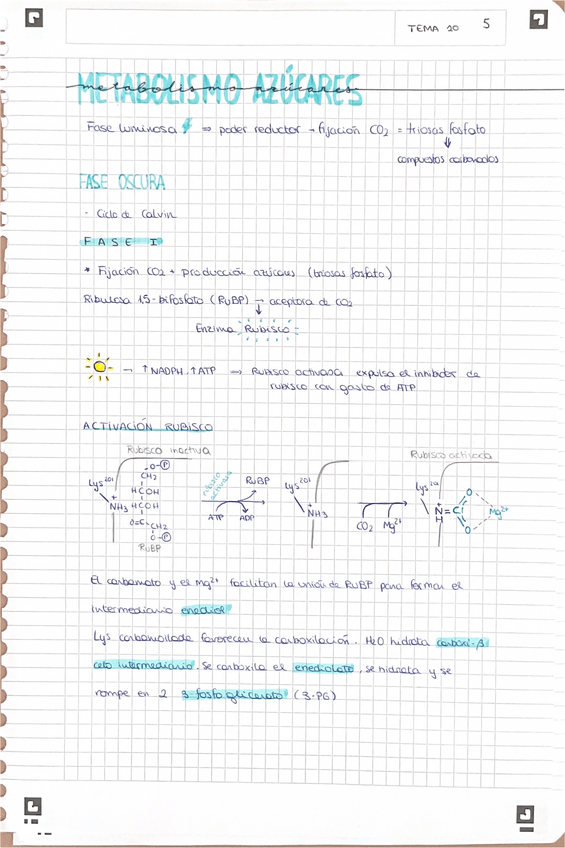 TEMA 20 5
METABOLISMO AZÚCARES
metabolismo azúcares
Fase luminosa ⇒ poder reductor → fijación CO2 = triosas fosfato
↓
compuestos carbonados
FASE OSCURA
· Ciclo de Calvin
FASE I
* Fijación CO2 + producción azúcares (triosas fosfato)
Ribulosa 1,5-bifosfato (RuBP) → aceptora de CO2
↓
Enzima Rubisco
→ ↑NADPH, ↑ATP ⇒ Rubisco activasa expulsa el inhibidor de
rubisco con gasto de ATP.
ACTIVACIÓN RUBISCO
Rubisco inactiva
Rubisco activada
Lys 201
NH3 +
O-P
CH2
HCOH
HCOH
O=C-CH2
O-P
RuBP
rubisco activasa
RuBP
ATP ADP
Lys 201
NH3 +
CO2 Mg2+
Lys 201
+
N=C
H
O
O
Mg2+
El carbamato y el Mg2+ facilitan la unión de RuBP para formar el
intermediario enediol
Lys carbamollada favorecen la carboxilación. H2O hidrata carboxi-β
ceto intermediario. Se carboxila el enediolato, se hidrata y se
rompe en 2 3-fosfoglicerato (3-PG)